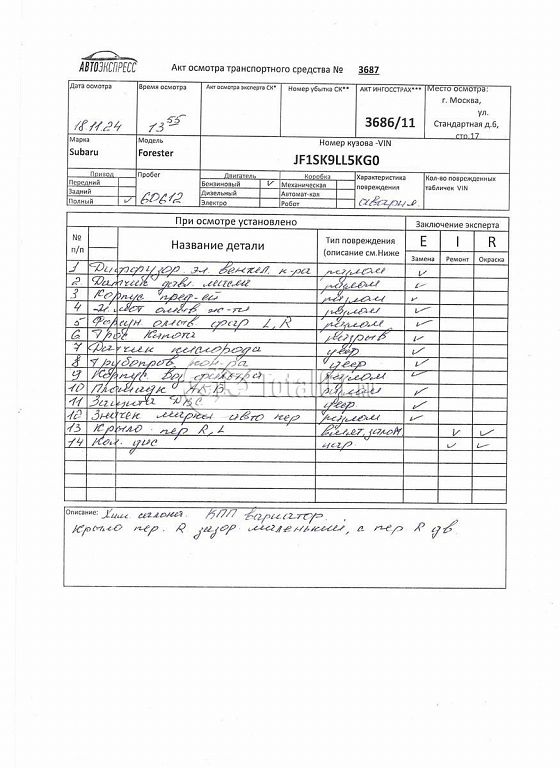 АВТОЭКСПРЕСС
Акт осмотра транспортного средства № 3687
Дата осмотра Время осмотра Акт осмотра эксперта СК* Номер убытка СК** АКТ ИНГОССТРАХ*** Место осмотра:
18.11.24 13 55 3686/11 г. Москва, ул. Стандартная д.6, стр.17
Марка Модель Номер кузова -VIN
Subaru Forester JF1SK9LL5KG0
Привод Пробег Двигатель Коробка Характеристика повреждения Кол-во поврежденных табличек VIN
Передний Бензиновый ✓ Механическая
Задний 60612 Дизельный Автомат-кая авария
Полный ✓ Электро Робот
При осмотре установлено Заключение эксперта
№ п/п Название детали Тип повреждения (описание см.Ниже E I R
Замена Ремонт Окраска
1 Диффузор эл. вентил. к-ра разлом ✓
2 Датчик давл. масла разлом ✓
3 Корпус пред-ей разлом ✓
4 разлом ✓
5 Форсун омыв. фар L, R разлом ✓
6 Трос капота разрыв ✓
7 Датчик кислорода деф ✓
8 Трубопров. кон-ра деф ✓
9 Корпус воз. фильтра разлом ✓
10 Площадк АКБ разлом ✓
11 Защита ДВС деф ✓
12 Значек марки авто пер разлом ✓
13 Крыло пер R, L вмят, залом ✓ ✓
14 Кол. дис цар. ✓ ✓
Описание: Хим. салона. КПП вариатор.
Крыло пер. R зазор маленький, с пер R дв.